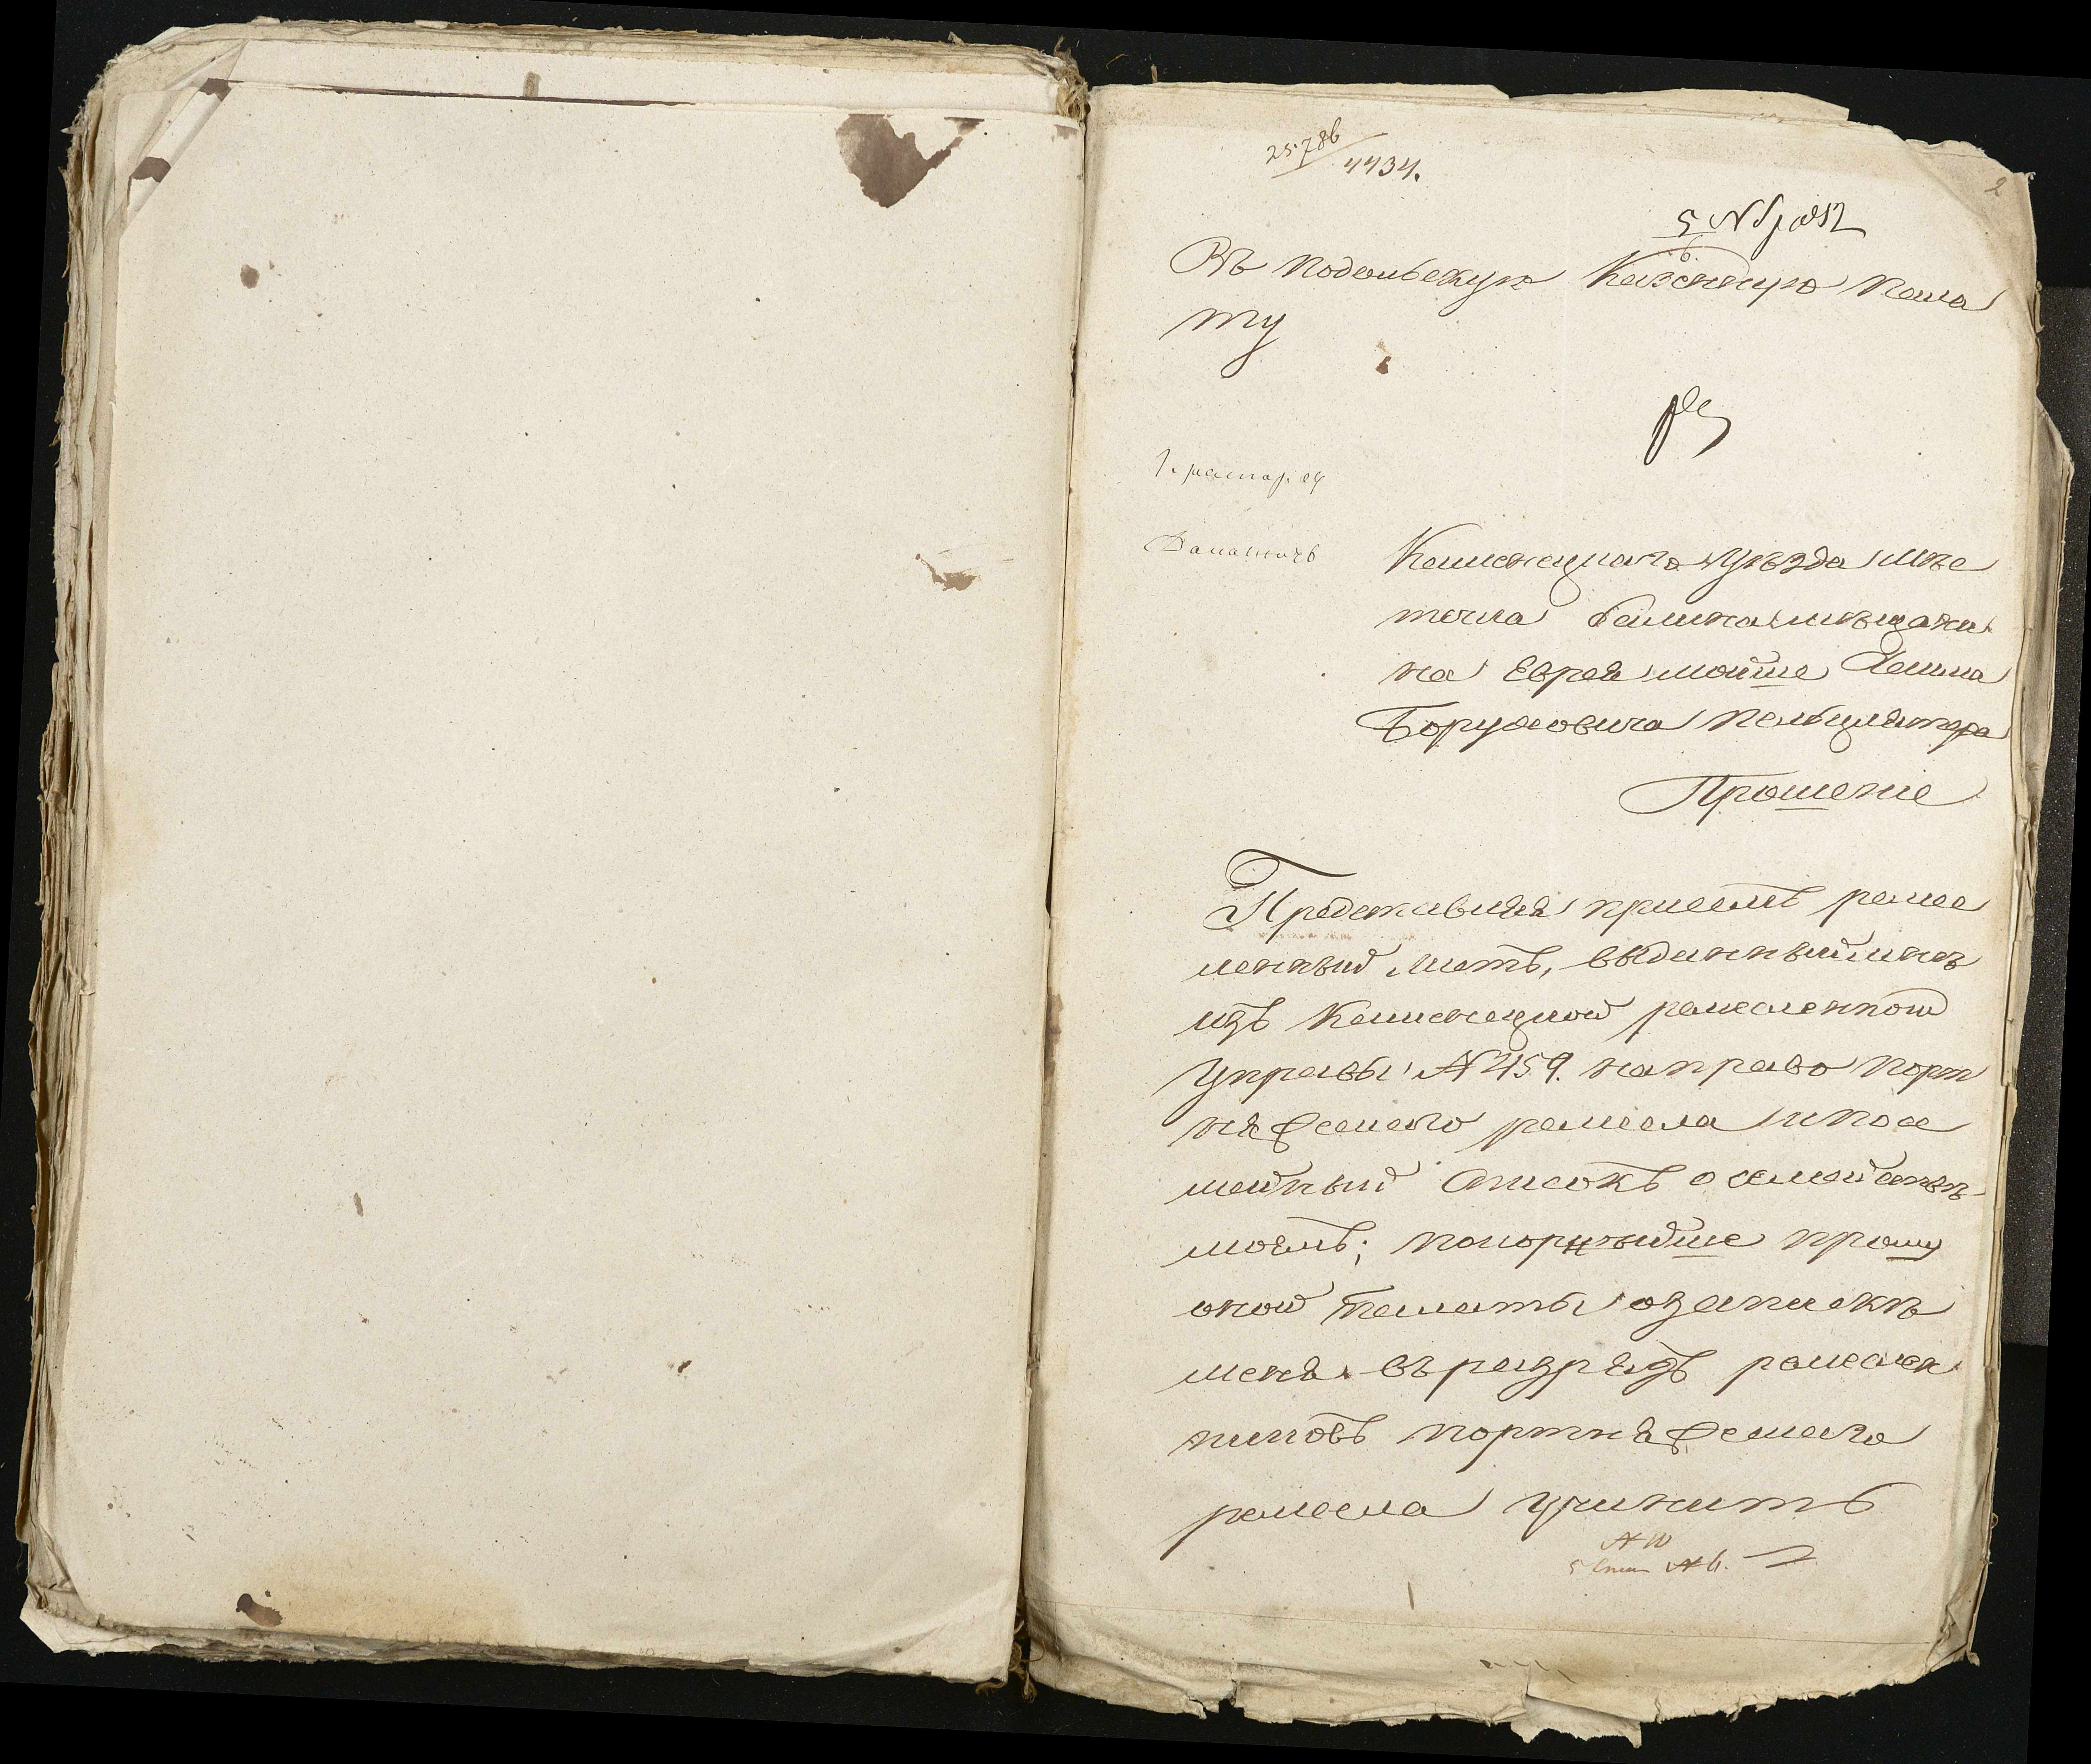 25786/4434.
2
5 Нбря 852
Въ Подольскую Казенную Пала
ту
Каменецкаго Уѣзда мѣс
течка Балина мѣщани
на Еврея Мойше Хаима
Боруховича Пельцмахера
Прошеніе
Представляя присемъ ремес
ленный листъ, выданный мнѣ
изъ Каменецкой ремесленной
Управы №459. на право Порт
няжескаго ремесла и посе
мейный списокъ о семействѣ
моемъ; покорнѣйше прошу
оной Палаты о запискѣ
меня въ разрядъ ремеслен
никовъ портняжескаго
ремесла учинить